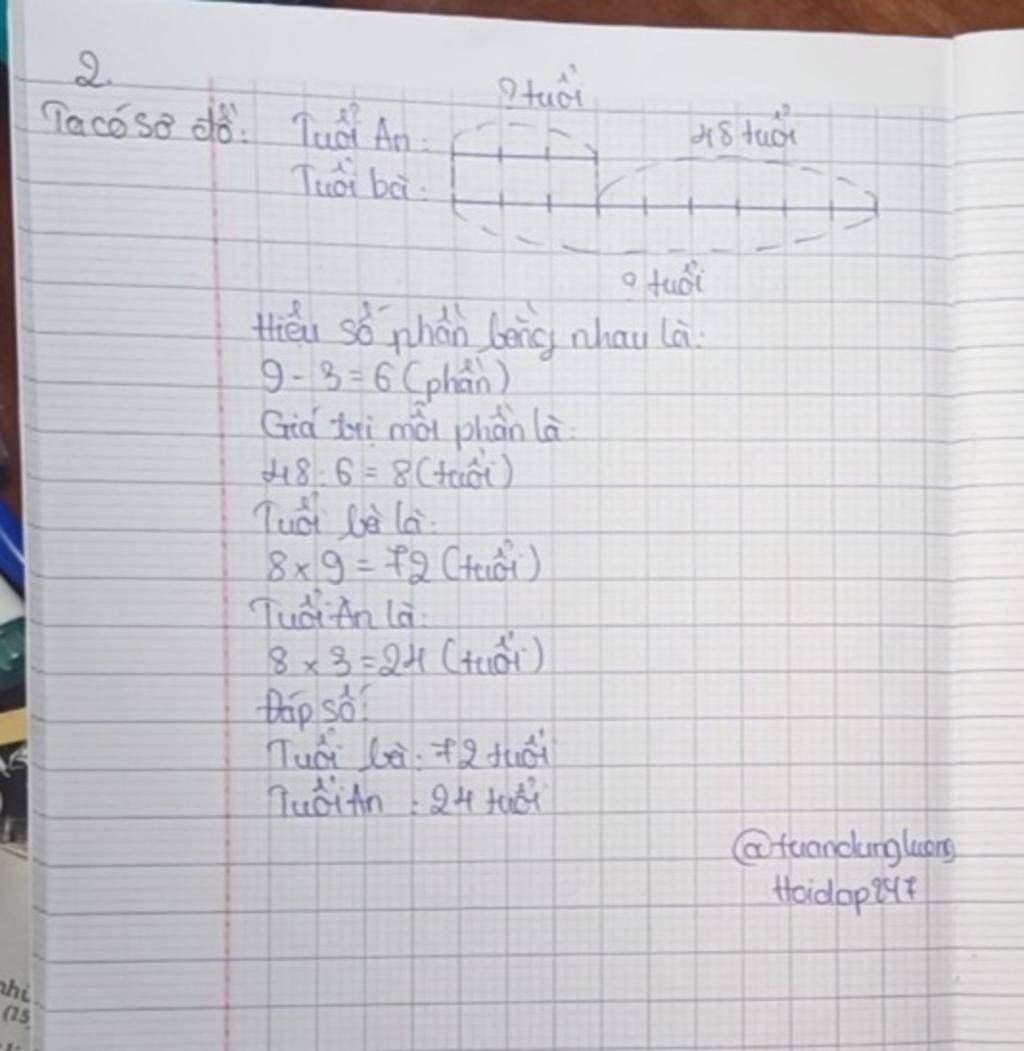 2.
? tuổi
Ta có sơ đồ: Tuổi An: 48 tuổi
Tuổi bà:
? tuổi
Hiệu số phần bằng nhau là:
9 - 3 = 6 (phần)
Giá trị mỗi phần là:
48 : 6 = 8 (tuổi)
Tuổi bà là:
8 x 9 = 72 (tuổi)
Tuổi An là:
8 x 3 = 24 (tuổi)
Đáp số:
Tuổi bà: 72 tuổi
Tuổi An : 24 tuổi
@tuandungluong
Hoidap247
nhi
(15